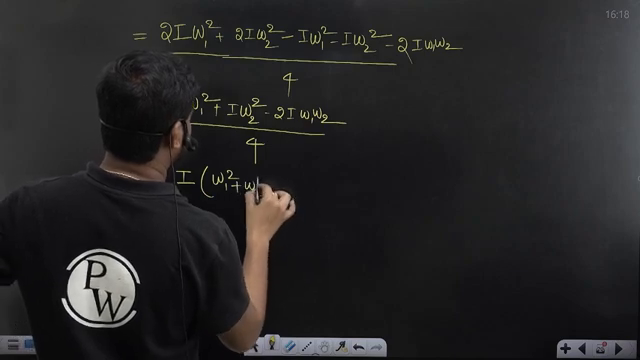 16:18
= 2Iω₁² + 2Iω₂² - Iω₁² - Iω₂² - 2Iω₁ω₂
4
ω₁² + Iω₂² - 2Iω₁ω₂
4
I (ω₁² + ω
PW